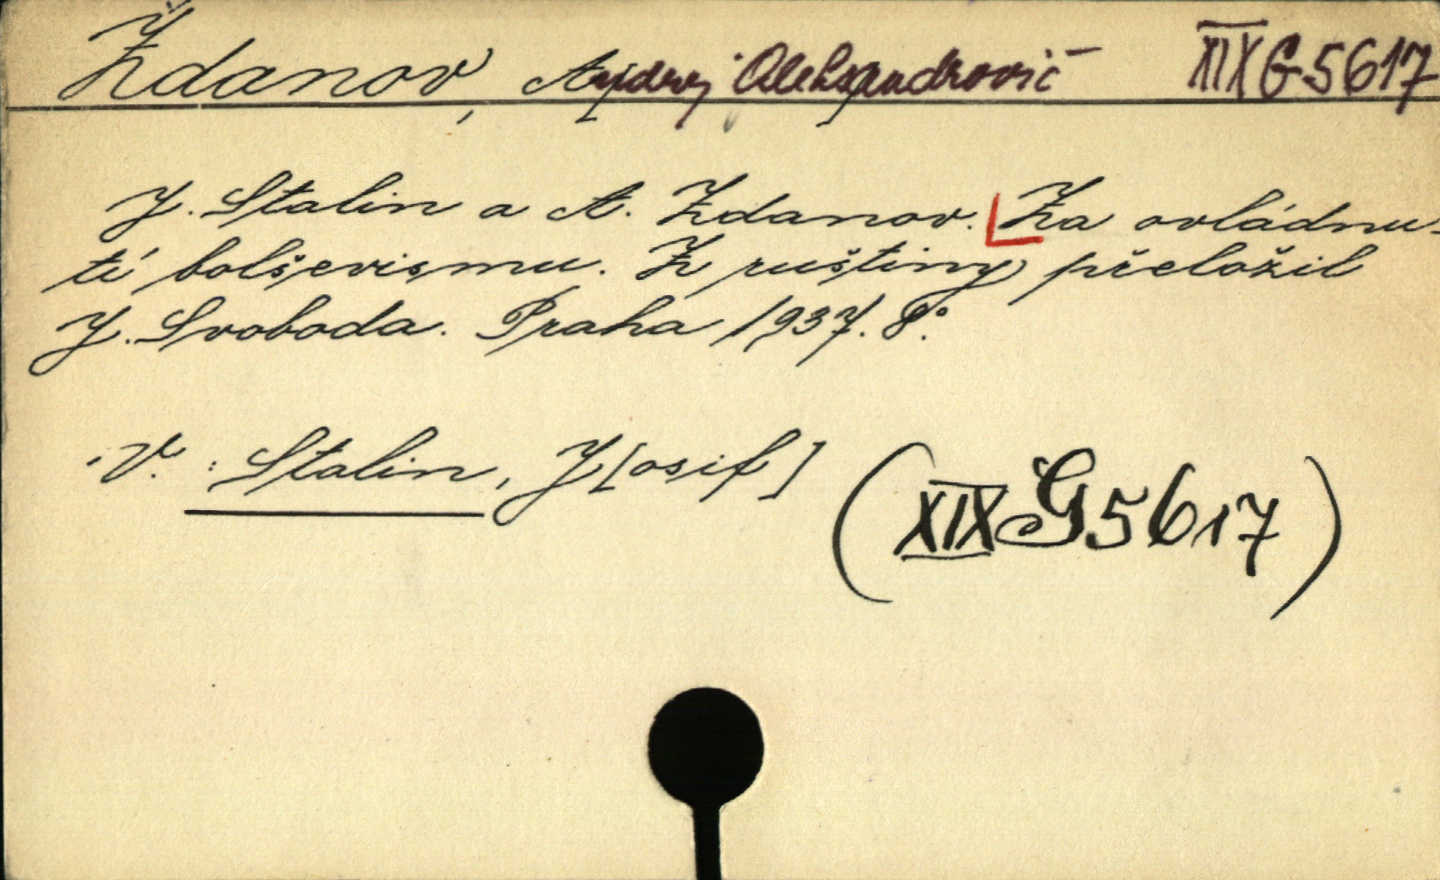 Ždanov, Andrej Aleksandrovič XIX G 5617
J. Stalin a A. Ždanov. Za ovládnu-
tí bolševismu. Z ruštiny přeložil
J. Svoboda. Praha 1937. 8°.
V. : Stalin, J[osif]
(XIX G 5617)